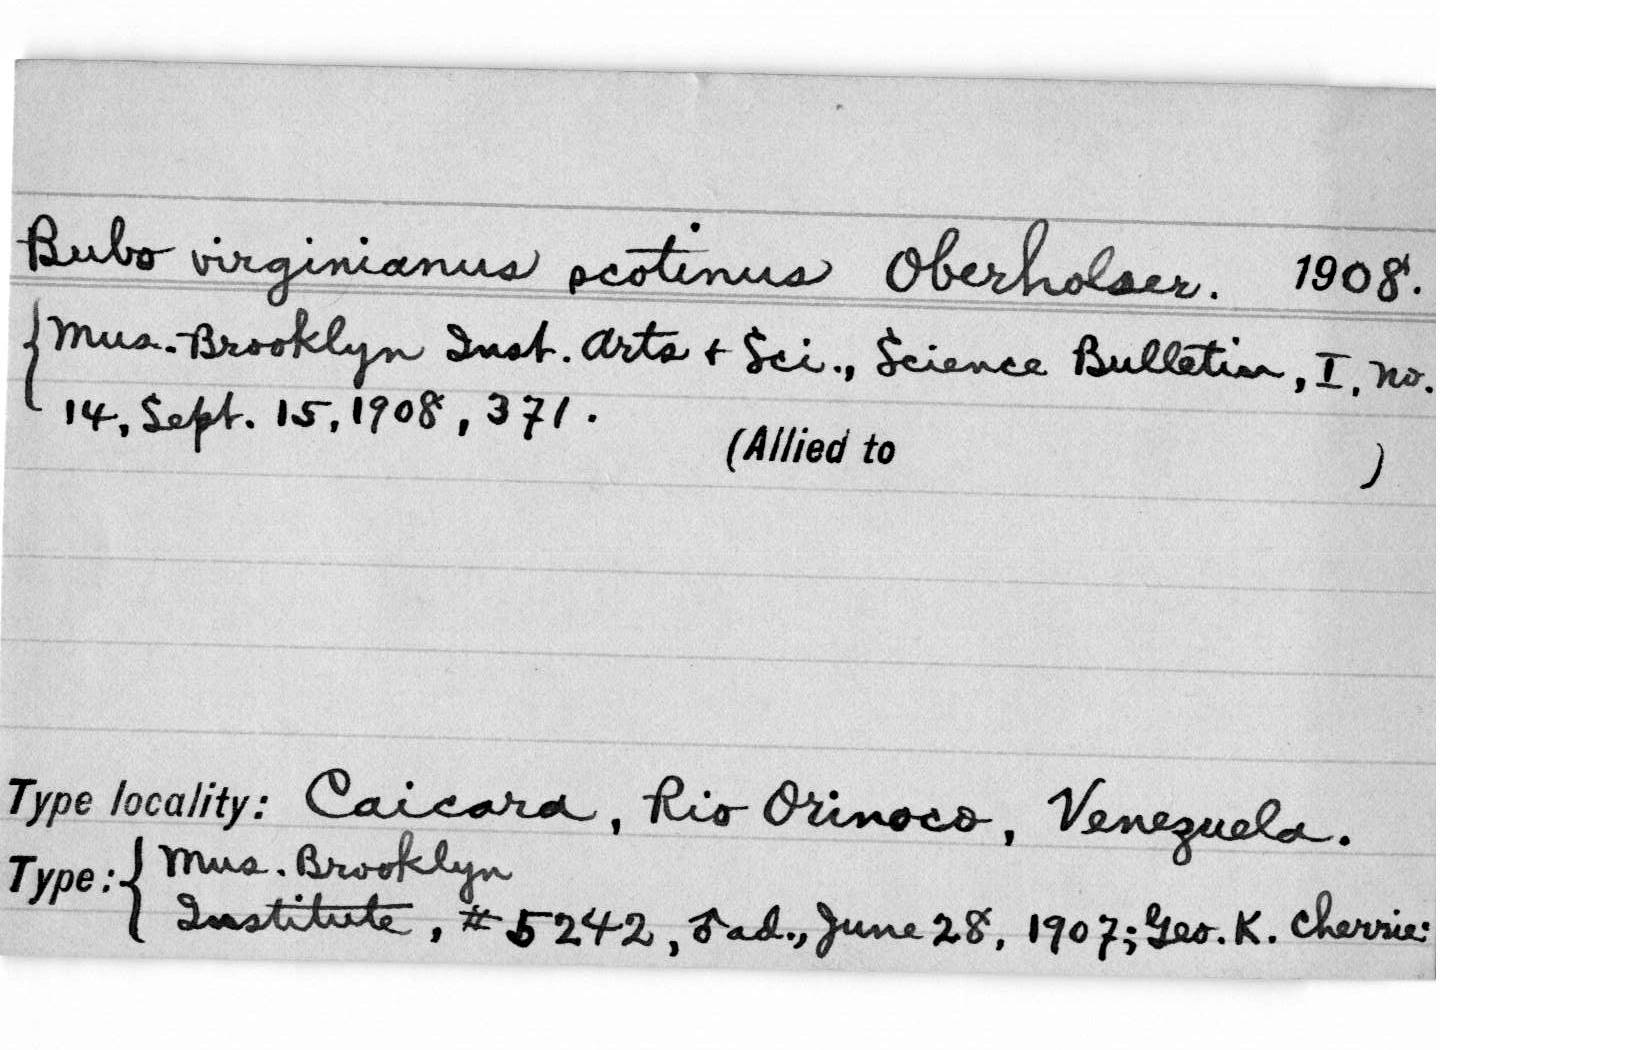 Bubo virginianus scotinus Oberholser. 1908.
Mus. Brooklyn Inst. Arts + Sci., Science Bulletin, I, no.
14, Sept. 15, 1908, 371.
(Allied to )
Type locality: Caicara, Rio Orinoco, Venezuela.
Type: Mus. Brooklyn
Institute, # 5242, ♂ ad., June 28, 1907; Geo. K. Cherrie: